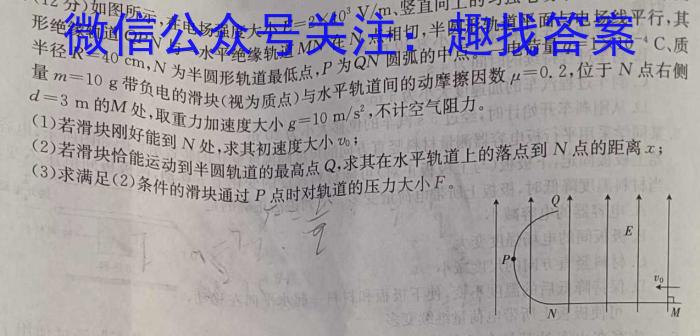 (12分)如图所示,在电场强度大 10³ V/m、竖直向上的匀强电
微信公众号关注:趣找答案
形绝缘轨道QPN与一水平绝缘轨道MN 点相切,半 轨道平面 电场线平行,其
半径R=40 cm,N为半圆形轨道最低点,P为QN圆弧的中点。 电荷量 ⁻⁴ C、质
量m=10 g带负电的滑块(视为质点)与水平轨道间的动摩擦因数μ=0.2,位于N点右侧
d=3 m的M处,取重力加速度大小g=10 m/s²,不计空气阻力。
(1)若滑块刚好能到N处,求其初速度大小v₀;
(2)若滑块恰能运动到半圆轨道的最高点Q,求其在水平轨道上的落点到N点的距离x;
(3)求满足(2)条件的滑块通过P点时对轨道的压力大小F。
Q
E
P
v₀
N
M